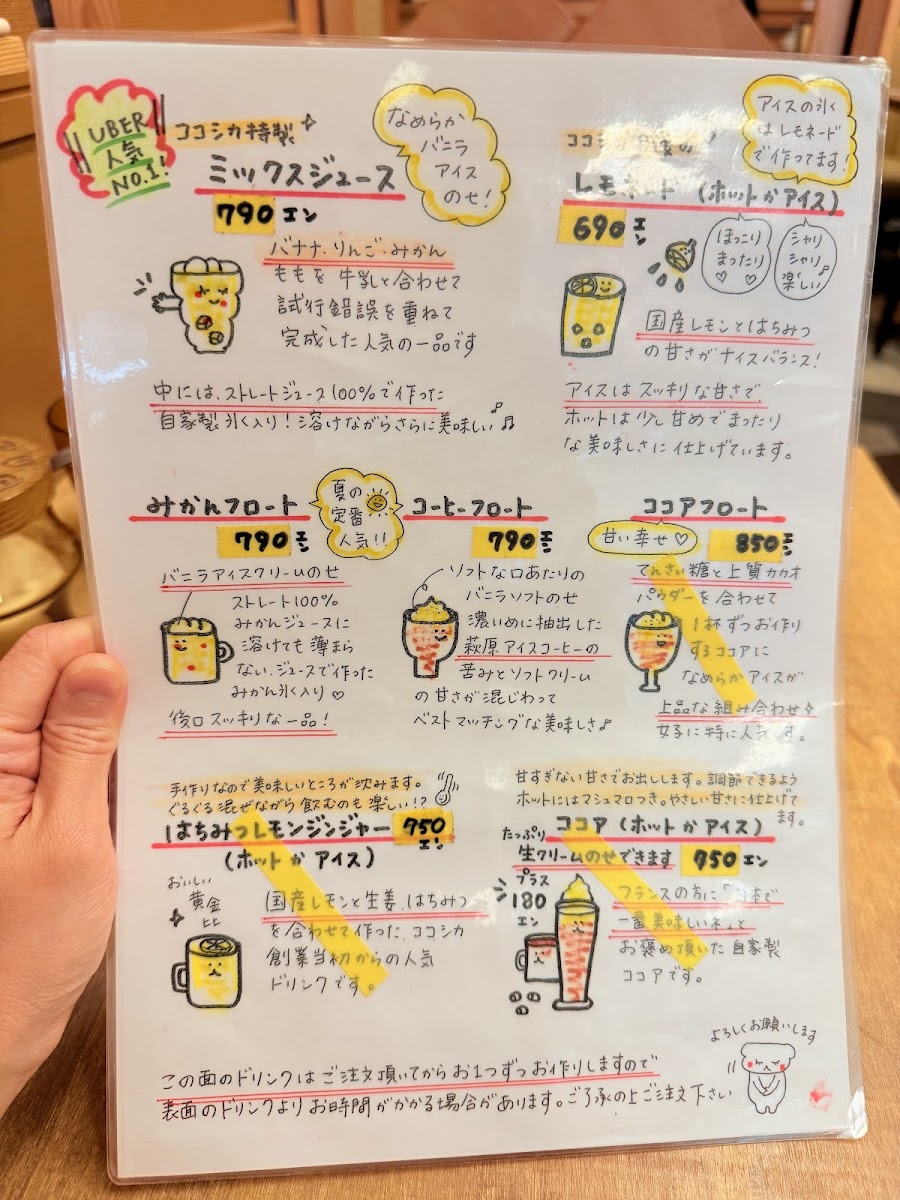 UBER
人気
NO.1!
ココシカ特製
ミックスジュース
790エン
なめらか
バニラ
アイス
のせ!
バナナ・りんご・みかん
ももを牛乳と合わせて
試行錯誤を重ねて
完成した人気の一品です
中には、ストレートジュース100%で作った
自家製氷入り!溶けながらさらに美味しい♪♫
アイスの氷
はレモネード
で作ってます!
ココシ
レモネード (ホットかアイス)
690エン
ほっこり
まったり
♡ ♡
シャリ
シャリ
楽しい♪
国産レモンとはちみつ
の甘さがナイスバランス!
アイスはスッキリな甘さで、
ホットは少し甘めでまったり
な美味しさに仕上げています。
みかんフロート
790エン
夏の
定番
人気!!
バニラアイスクリームのせ
ストレート100%
みかんジュースに
溶けても薄まら
ない、ジュースで作った
みかん氷入り♡
後口スッキリな一品!
コーヒーフロート
790エン
ソフトな口あたりの
バニラソフトのせ
濃いめに抽出した
萩原アイスコーヒーの
苦みとソフトクリーム
の甘さが混じわって
ベストマッチングな美味しさ♪
ココアフロート
甘い幸せ♡
850エン
てんさい糖と上質カカオ
パウダーを合わせて
1杯ずつお作り
するココアに
なめらかアイスが
上品な組み合わせ✧
女子に特に人気です。
手作りなので美味しいところが沈みます。
ぐるぐる混ぜながら飲むのも楽しい!?
はちみつレモンジンジャー 750エン
(ホットかアイス)
おいしい
黄金
比
国産レモンと生姜、はちみつ
を合わせて作った、ココシカ
創業当初からの人気
ドリンクです。
甘すぎない甘さでお出しします。調節できるよう
ホットにはマシュマロつき。やさしい甘さに仕上げて
ます。
ココア (ホットかアイス)
750エン
たっぷり
生クリームのせできます
プラス
180
エン
フランスの方に「日本で
一番美味しいネ」と
お褒め頂いた自家製
ココアです。
よろしくお願いします
この面のドリンクはご注文頂いてからお1つずつお作りしますので
表面のドリンクよりお時間がかかる場合があります。ご了承の上ご注文下さい